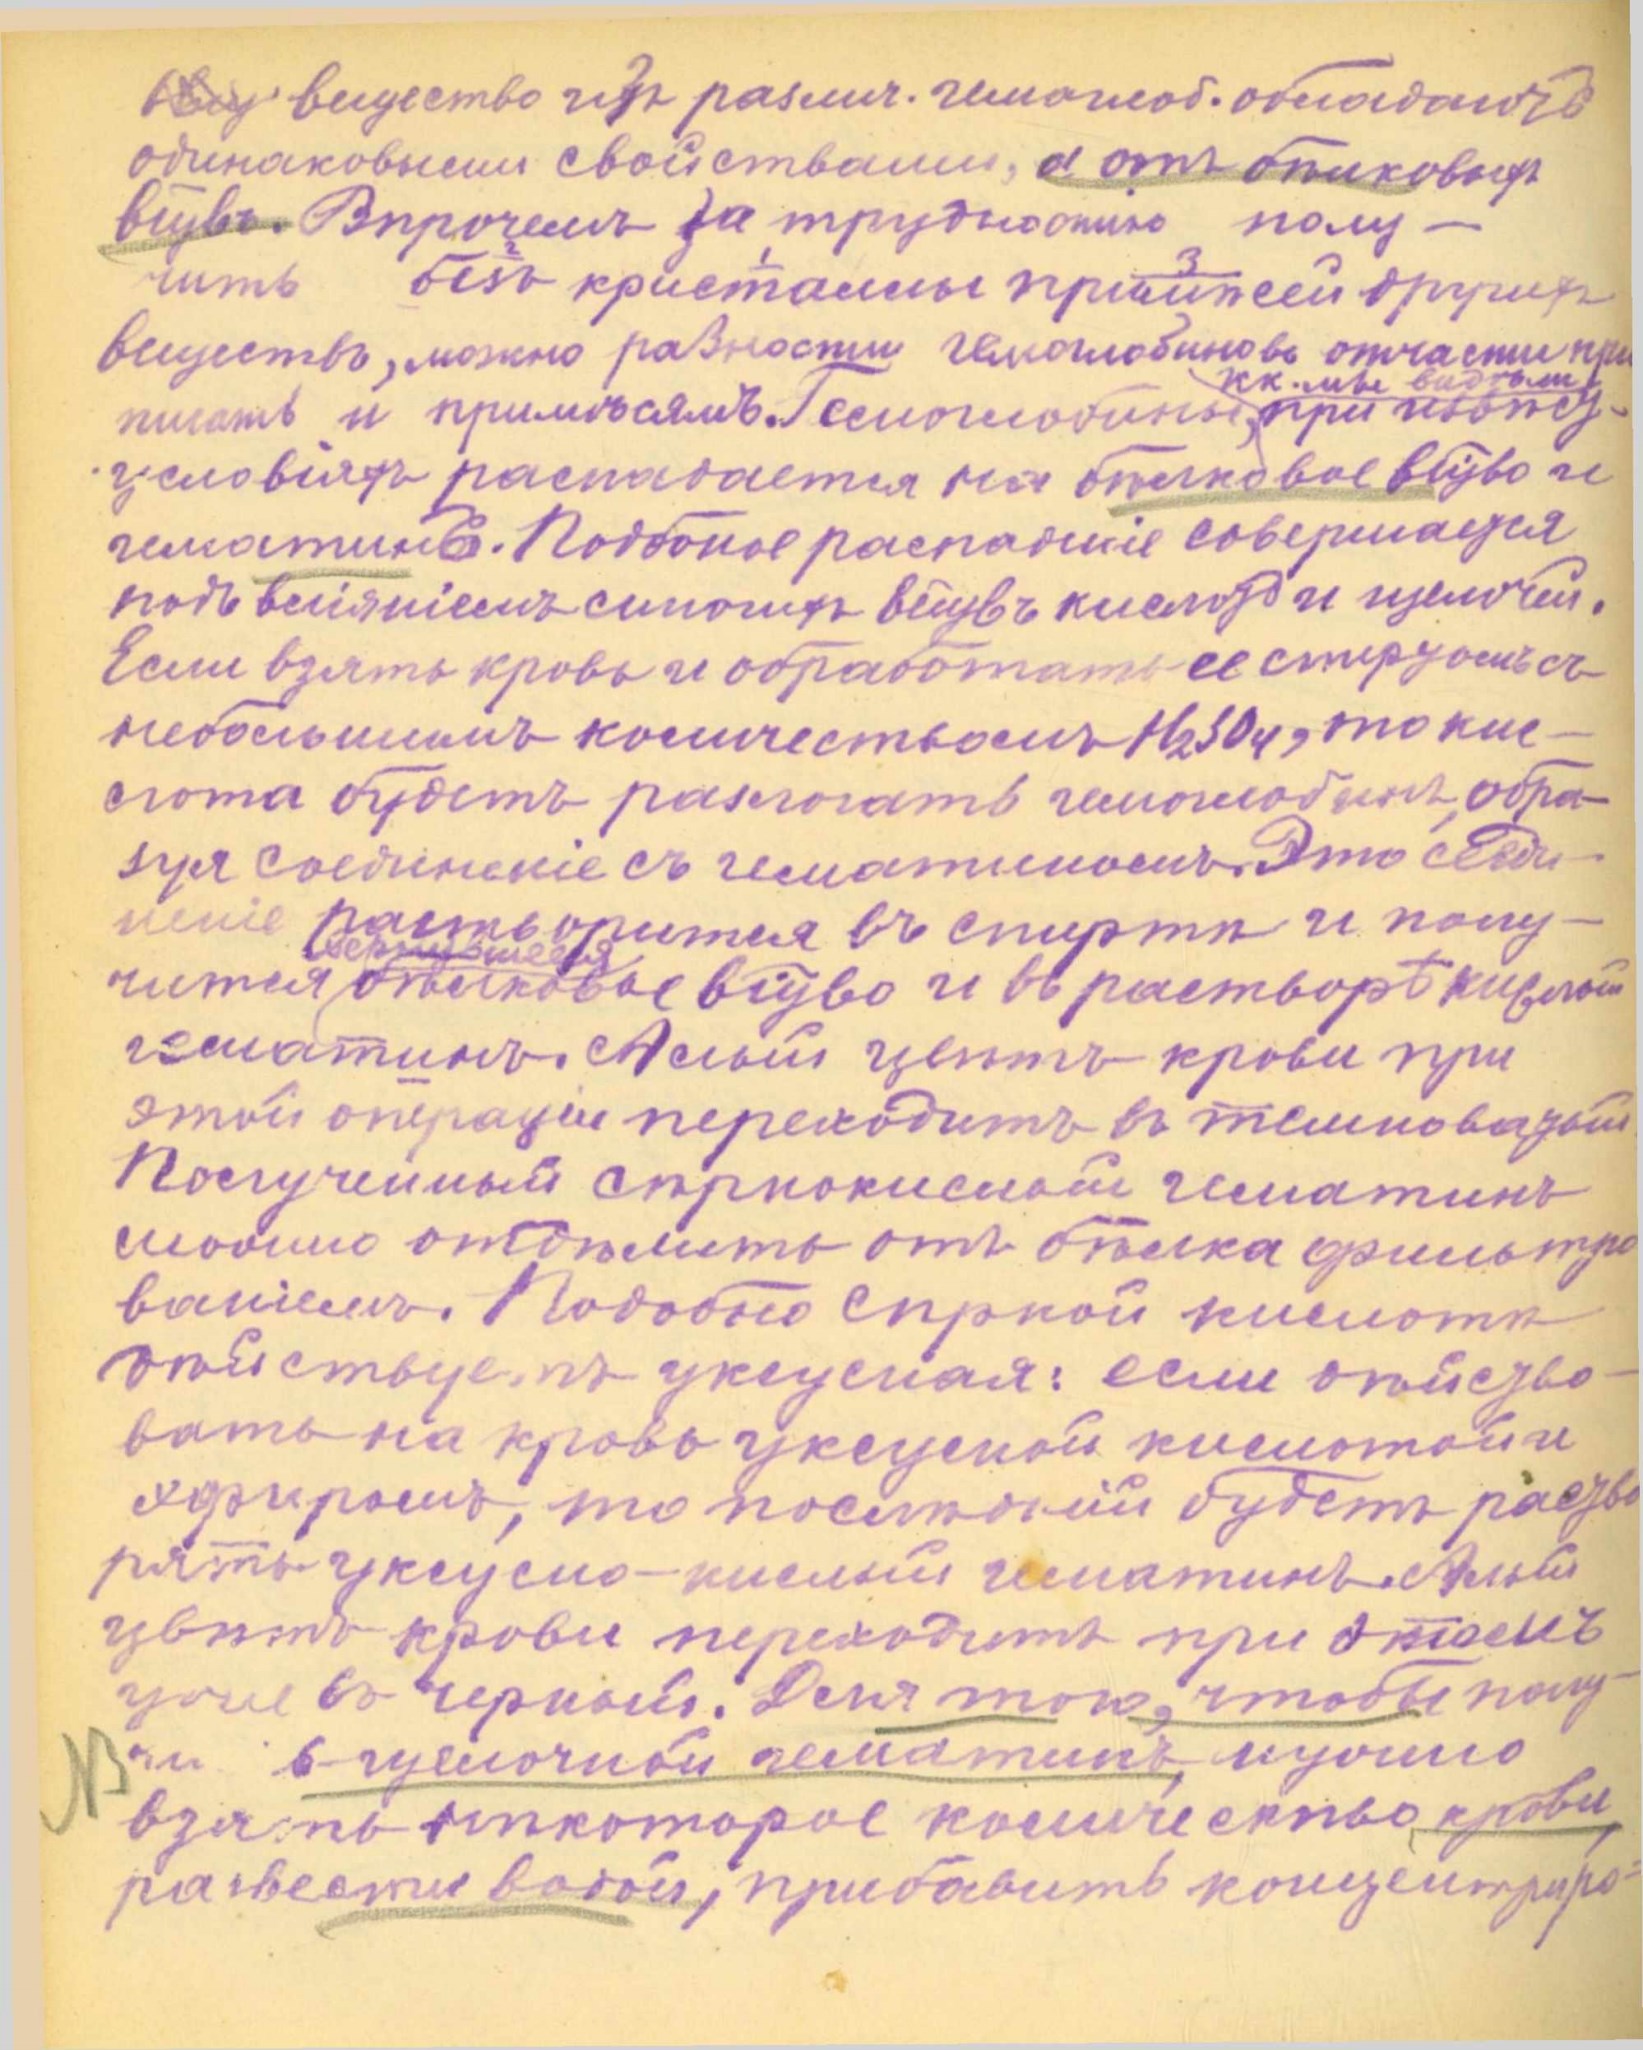 вещество изъ различ. гемоглоб. обладаютъ
одинаковыми свойствами, а отъ бѣлковыхъ
в-въ. Впрочемъ за трудностью полу-
чить безъ кристаллы примѣсей другихъ
веществъ, можно разности гемоглобиновъ отчасти при
кк. мы видѣли,
писать и примѣсямъ. Гемоглобины, при извѣс.
условіяхъ распадается на бѣлковое в-во и
гематинъ. Подобное распаденіе совершается
подъ вліяніемъ многихъ в-въ кислотъ и щелочей.
Если взять кровь и обработать ее спиртомъ съ
небольшимъ количествомъ H2SO4, то кис-
лота будетъ разлогать гемоглобинъ, обра-
зуя соединеніе съ гематиномъ. Это соеди-
неніе растворится въ спиртѣ и полу-
свернувшееся
чится бѣлковое в-во и въ растворѣ кислый
гематинъ. Алый цвѣтъ крови при
этой операціи переходитъ въ темноватый
Полученный сѣрнокислый гематинъ
можно отдѣлить отъ бѣлка фильтро
ваніемъ. Подобно сѣрной кислотѣ
дѣйствуетъ уксусная: если дѣйство-
вать на кровь уксусной кислотой и
эфиромъ, то послѣдній будетъ раство
рять уксусно-кислый гематинъ. Алый
цвѣтъ крови переходитъ при этомъ
уже въ черный. Для того, чтобы полу-
NB чи ь щелочной гематинъ, нужно
взять нѣкоторое количество крови,
развести водой, прибавить концентриро-